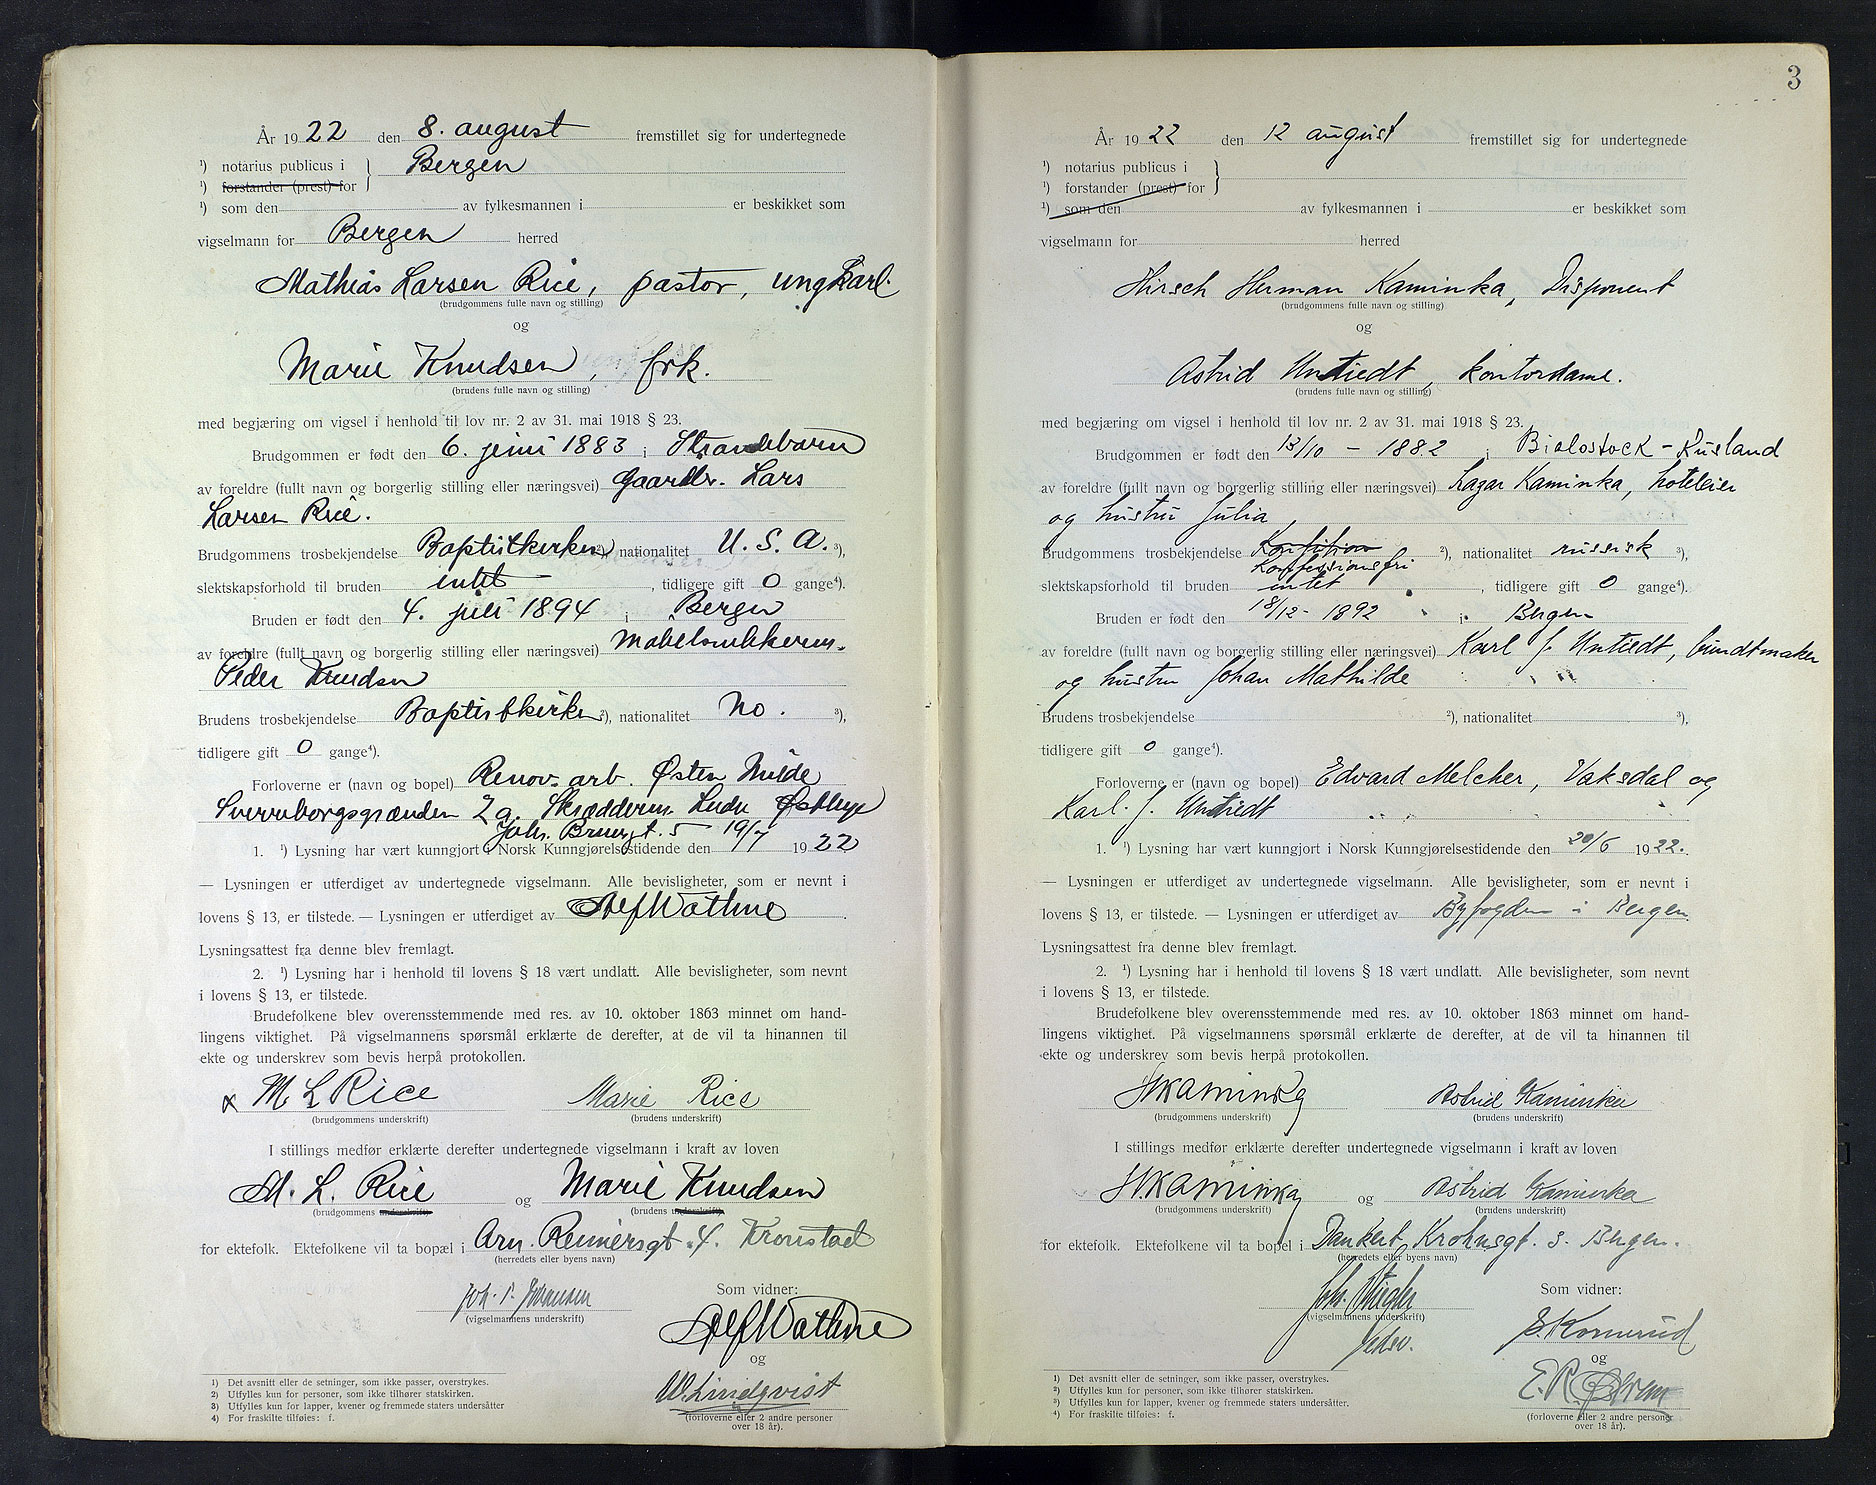 År 1922 den 8. august fremstillet sig for undertegnede
¹) notarius publicus i } Bergen
¹) forstander (prest) for
¹) som den av fylkesmannen i er beskikket som
vigselmann for Bergen herred
Mathias Larsen Rice, pastor, ungkarl.
(brudgommens fulle navn og stilling)
og
Marie Knudsen, frk.
(brudens fulle navn og stilling)
med begjæring om vigsel i henhold til lov nr. 2 av 31. mai 1918 § 23.
Brudgommen er født den 6. juni 1883 i Strandebarm
av foreldre (fullt navn og borgerlig stilling eller næringsvei) Gaardbr. Lars
Larsen Rice.
Brudgommens trosbekjendelse Baptistkirken ²), nationalitet U. S. A. ³),
slektskapsforhold til bruden intet, tidligere gift 0 gange⁴).
Bruden er født den 4. juli 1894 i Bergen
av foreldre (fullt navn og borgerlig stilling eller næringsvei) Møbelsnekkerm.
Peder Knudsen
Brudens trosbekjendelse Baptistkirken ²), nationalitet No. ³),
tidligere gift 0 gange⁴).
Forloverne er (navn og bopel) Renov. arb. Østen Milde
Sverreborgsgrænden 2a. Skrædderm. Ludv.
Joh. Bruunsgt. 5
1. ¹) Lysning har vært kunngjort i Norsk Kunngjørelsestidende den 19/7 1922
— Lysningen er utferdiget av undertegnede vigselmann. Alle bevisligheter, som er nevnt i
lovens § 13, er tilstede. — Lysningen er utferdiget av Alf Wathne.
Lysningsattest fra denne blev fremlagt.
2. ¹) Lysning har i henhold til lovens § 18 vært undlatt. Alle bevisligheter, som nevnt
i lovens § 13, er tilstede.
Brudefolkene blev overensstemmende med res. av 10. oktober 1863 minnet om hand-
lingens viktighet. På vigselmannens spørsmål erklærte de derefter, at de vil ta hinannen til
ekte og underskrev som bevis herpå protokollen.
x M L Rice Marie Rice
(brudgommens underskrift) (brudens underskrift)
I stillings medfør erklærte derefter undertegnede vigselmann i kraft av loven
M. L. Rice og Marie Knudsen
(brudgommens underskrift) (brudens underskrift)
for ektefolk. Ektefolkene vil ta bopæl i Arn. Reimersgt. 4. Kronstad
(herredets eller byens navn)
Joh. P. Johansen Som vidner:
(vigselmannens underskrift)
Alf Wathne
og
W. Lindqvist
(forloverne eller 2 andre personer
over 18 år).
1) Det avsnitt eller de setninger, som ikke passer, overstrykes.
2) Utfylles kun for personer, som ikke tilhører statskirken.
3) Utfylles kun for lapper, kvener og fremmede staters undersåtter
4) For fraskilte tilføies: f.
3
År 1922 den 12 august fremstillet sig for undertegnede
¹) notarius publicus i }
¹) forstander (prest) for
¹) som den av fylkesmannen i er beskikket som
vigselmann for herred
Hirsch Herman Kaminka, Disponent
(brudgommens fulle navn og stilling)
og
Astrid Untiedt, kontordame.
(brudens fulle navn og stilling)
med begjæring om vigsel i henhold til lov nr. 2 av 31. mai 1918 § 23.
Brudgommen er født den 13/10 - 1882 i Bialostock - Rusland
av foreldre (fullt navn og borgerlig stilling eller næringsvei) Lazar Kaminka, hoteleier
og hustru Julia
Brudgommens trosbekjendelse ²), nationalitet russisk ³),
Konfessionsfri
slektskapsforhold til bruden intet, tidligere gift 0 gange⁴).
Bruden er født den 18/12 - 1892 i Bergen
av foreldre (fullt navn og borgerlig stilling eller næringsvei) Karl J. Untiedt, bundtmaker
og hustru Johan Mathilde
Brudens trosbekjendelse ²), nationalitet ³),
tidligere gift 0 gange⁴).
Forloverne er (navn og bopel) Edvard Melcher, Vaksdal og
Karl. J. Untiedt
1. ¹) Lysning har vært kunngjort i Norsk Kunngjørelsestidende den 20/6 1922.
— Lysningen er utferdiget av undertegnede vigselmann. Alle bevisligheter, som er nevnt i
lovens § 13, er tilstede. — Lysningen er utferdiget av Byfogden i Bergen.
Lysningsattest fra denne blev fremlagt.
2. ¹) Lysning har i henhold til lovens § 18 vært undlatt. Alle bevisligheter, som nevnt
i lovens § 13, er tilstede.
Brudefolkene blev overensstemmende med res. av 10. oktober 1863 minnet om hand-
lingens viktighet. På vigselmannens spørsmål erklærte de derefter, at de vil ta hinannen til
ekte og underskrev som bevis herpå protokollen.
H Kaminka Astrid Kaminka
(brudgommens underskrift) (brudens underskrift)
I stillings medfør erklærte derefter undertegnede vigselmann i kraft av loven
H. Kaminka og Astrid Kaminka
(brudgommens underskrift) (brudens underskrift)
for ektefolk. Ektefolkene vil ta bopel i Dankert Krohnsgt. 3. Bergen.
(herredets eller byens navn)
Joh. Som vidner:
(vigselmannens underskrift)
E. Kornerud
og
E. R.
(forloverne eller 2 andre personer
over 18 år).
¹) Det avsnitt eller de setninger, som ikke passer, overstrykes.
²) Utfylles kun for personer, som ikke tilhører statskirken.
³) Utfylles kun for lapper, kvener og fremmede staters undersåtter.
⁴) For fraskilte tilføies: f.